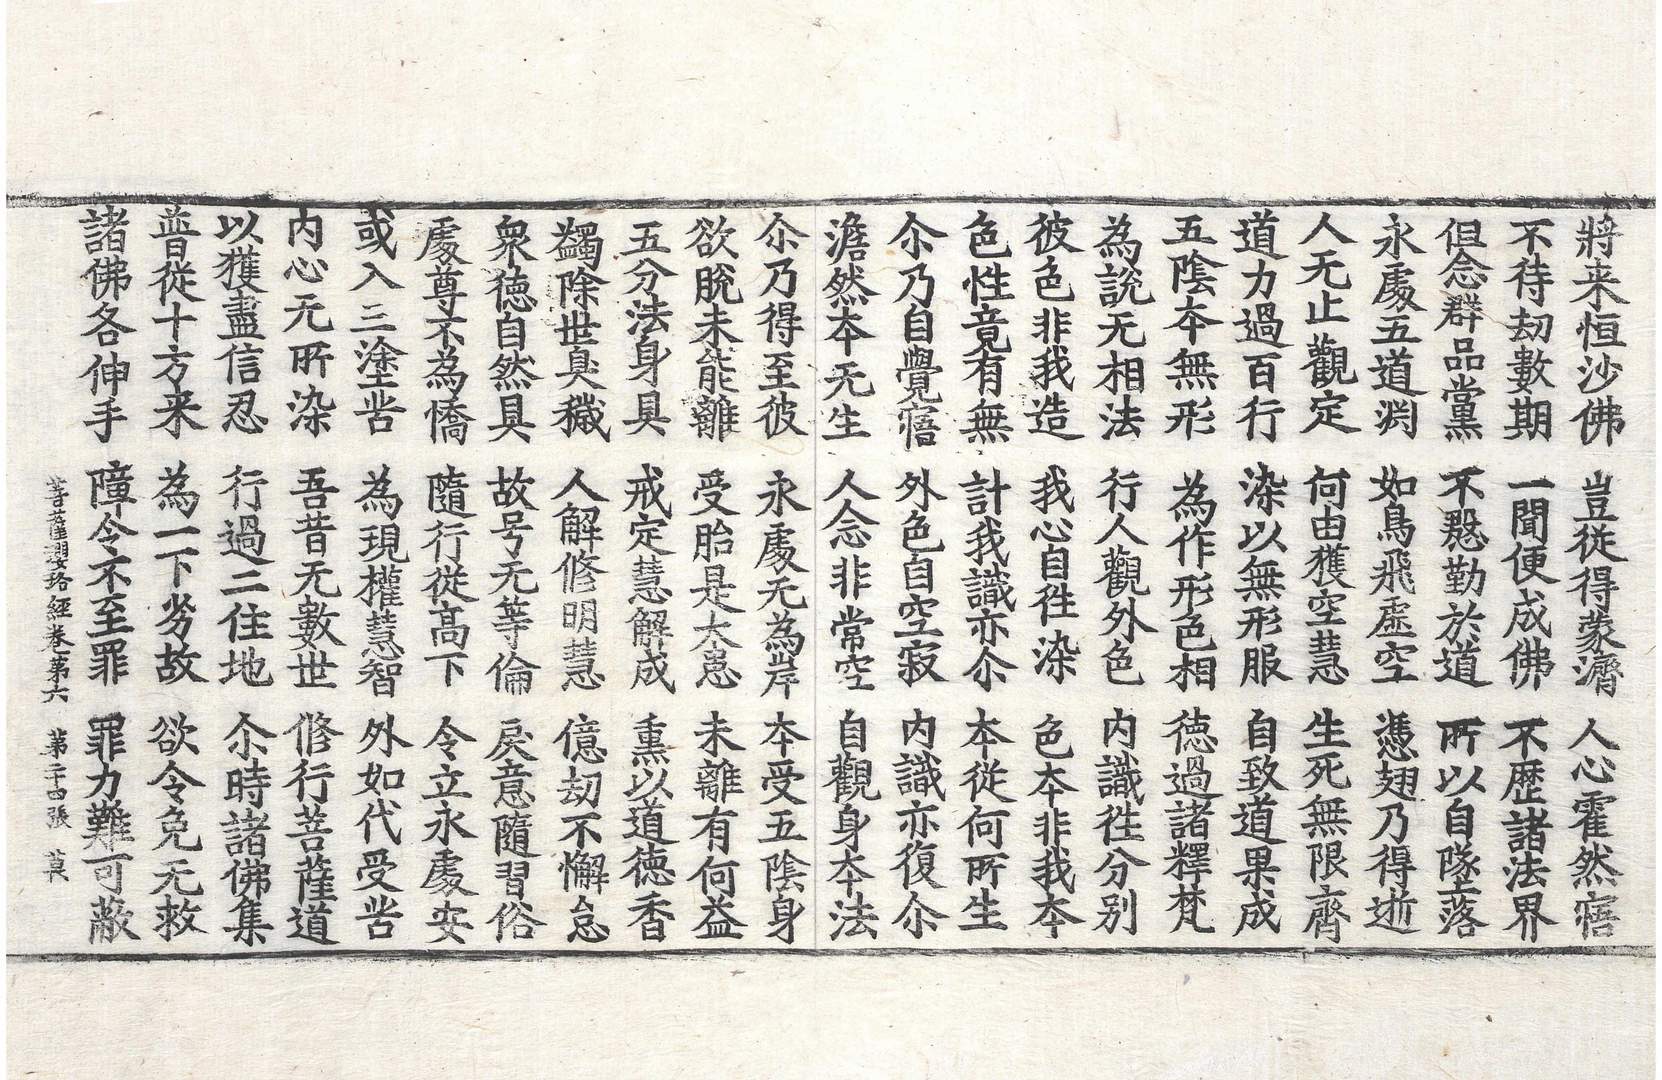 將来恒沙佛 豈従得蒙濟 人心霍然寤
不待劫數期 一聞便成佛 不歷諸法界
但念群品黨 不慇勤於道 所以自墜落
永處五道渊 如鳥飛虛空 憑翅乃得逝
人无止觀定 何由獲空慧 生死無限齊
道力過百行 染以無形服 自致道果成
五陰夲無形 為作形色相 徳過諸釋梵
為説无相法 行人觀外色 内識性分別
彼色非我造 我心自性染 色夲非我夲
色性竟有無 計我識亦尒 夲從何所生
尒乃自覺寤 外色自空寂 内識亦復尒
澹然夲无生 人念非常空 自觀身夲法
尒乃得至彼 永處无為岸 夲受五陰身
欲脫未能離 受胎是大患 未離有何益
五分法身具 戒定慧解成 熏以道徳香
蠲除世臭穢 人解修明慧 億劫不懈怠
衆徳自然具 故号无等倫 戾意隨習俗
處尊不為憍 隨行従髙下 令立永處安
或入三塗苦 為現權慧智 外如代受苦
内心无所染 吾昔无數世 修行菩薩道
以獲盡信忍 行過二住地 尒時諸佛集
普從十方来 為一下劣故 欲令免无救
諸佛各伸手 障令不至罪 罪力難可蔽
菩薩瓔珞經卷第六 第二十四張 莫